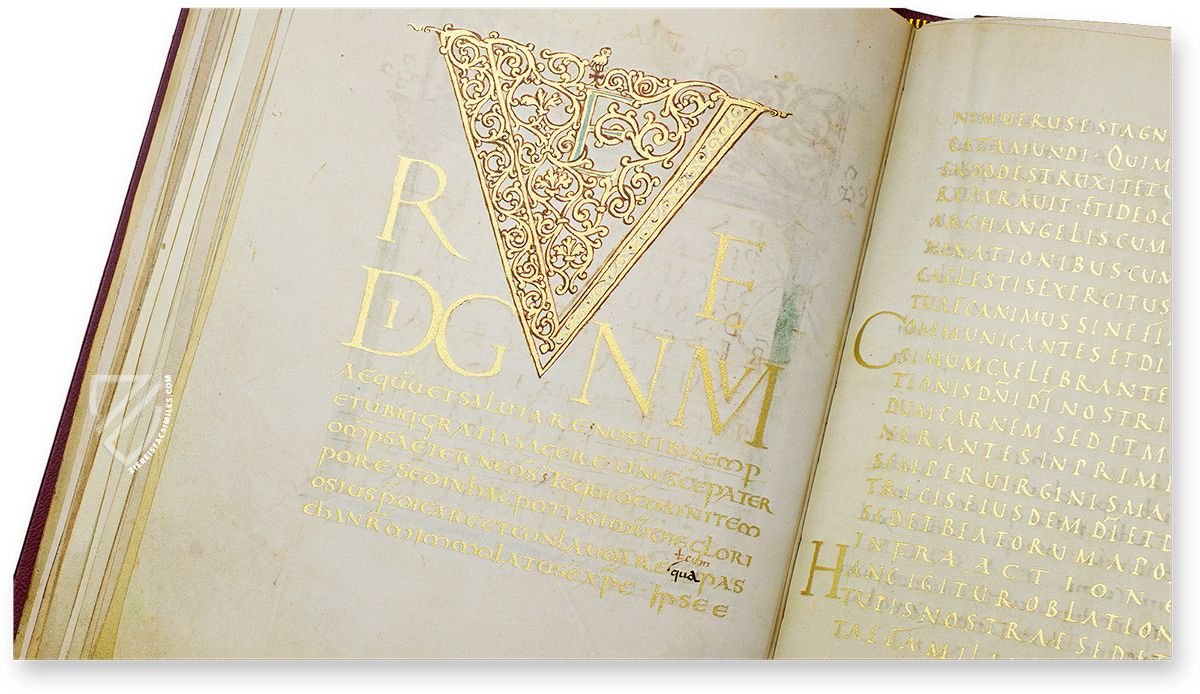 V
R E
DIG N UM
AEQUU ET SALUTARE NOS TIBI SEMP
ET UBIQ GRATIAS AGERE DNE SCE PATER
OMPS AETERNE DS TE QUIDEM OMNI TEM
PORE SED IN HAC POTISSIMU DIE GLORI
OSIUS PDICARE ET CONLAUDARE PAS
tecum
qua
CHA NRM IMMOLATUS E XPC IPSE E
NIM UERUS EST AGN
CATA MUNDI QUI M
ENDO DESTRUXIT ET U
REPARAUIT ET IDEO C
ARCHANGELIS CUM
NATIONIBUS CUM
CAELESTIS EXERCITUS
TUAE CANIMUS SINE FI
COMMUNICANTES ET DI
SIMUM CELEBRANTE
TIONIS DNI DI NOSTRI
DUM CARNEM SED ET M
NERANTES INPRIMI
SEMPER UIRGINIS MA
TRICIS EIUSDEM DI ET D
SED ET BEATORUM APO
INFRA ACTIONE
HANC IGITUR OBLATION
TUTIS NOSTRAE SED ET
TAE FAMILI
ZIEREISFACSIMILES.COM